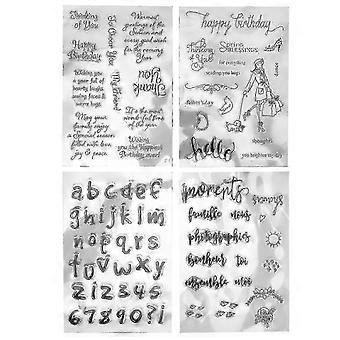 Thinking
of You
Happy
Birthday
Wishing you
a year full of
hearty laughs
smiling faces &
warm hugs
May your
family enjoy
a special season
filled with love,
joy & peace
For
Over You
My Friend
Warmest
greetings of the
Season and
every good wish
for the coming
Year
Thank
You
It's the most
wonderful time
of the year
Wishing
you the Happiest
Birthday ever!
happy birthday
Thinking
of You
Spring
BLESSINGS
for everything
sending you hugs
thoughts
hello
you brighten my day
a b c d e f
g h i j k l m
n o p q r s
t u v w x y z
1 2 3 4 5
6 7 8 9 0 ? !
moments
famille nous
photographies
bonheur toi
ensemble moi